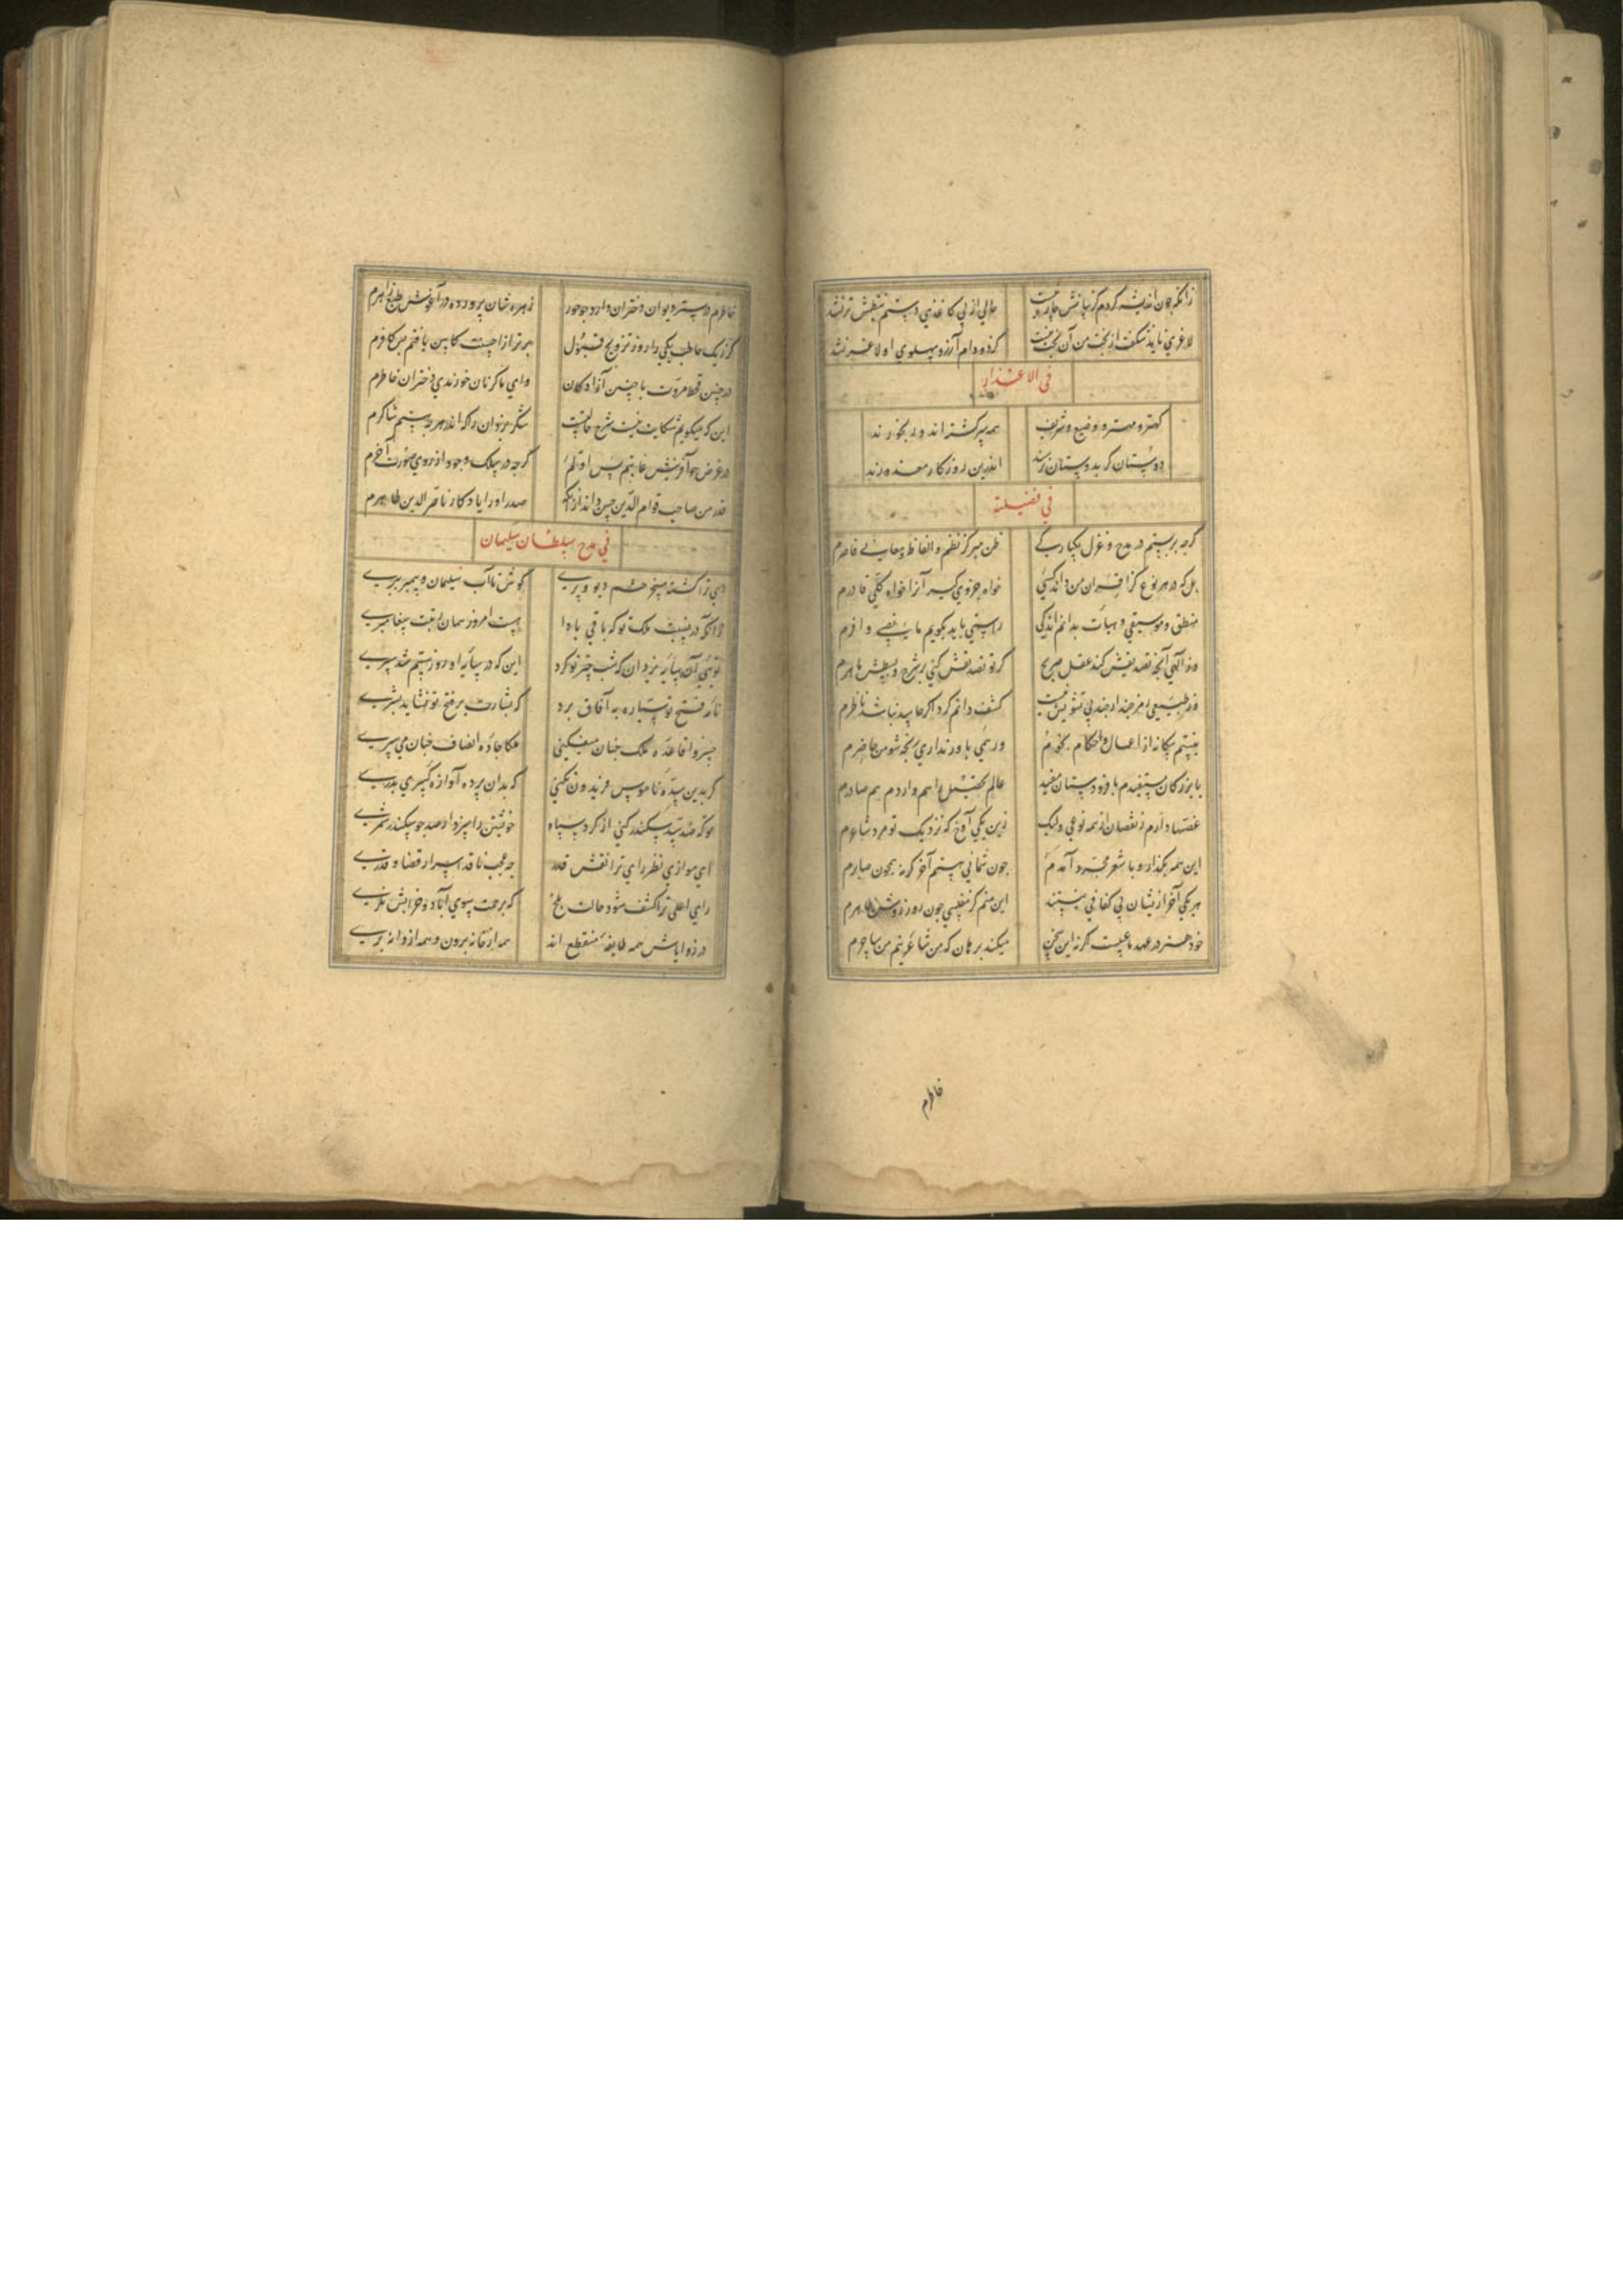 زانکه چون اندیشه کردم کز بیانش چاره نیست حالی از بی کاغذی دستم بنظمش تر نشد
لاغری ناید شگفت از بخت من آن بخت نیست کزو دام آرزو پهلوی او لاغر نشد
فی الاعتذار
کهتر و مهتر و وضیع و شریف همه سرگشته‌اند و رنجورند
دوستان گر بدوستان نرسند اندرین روزگار معذورند
فی فضیلته
گرچه بربستم در مدح و غزل یکبارگی ظن مبر کز نظم و الفاظ و معانی قاصرم
بل که در هر نوع کز اقران من داند کسی خواه جزوی گیر آنرا خواه کلی قادرم
منطق و موسیقی و هیأت بدانم اندکی راستی باید بگویم با نصیبی وافرم
وز الهی آنچه تصدیقش کند عقل صریح گر تو تصدیقش کنی بر شرح و بسطش ماهرم
وز طبیعی رمز چند ار چند بی تشویش نیست کشف دانم کرد اگر حاسد نباشد ناظرم
نیستم بیگانه از اعمال و احکام نجوم ور همی باور نداری رنجه شو من حاضرم
با بزرگان مستفیدم با فرودستان مفید عالم تحصیل را هم واردم هم صادرم
غصها دارم ز نقصان از همه نوعی ولیک زین یکی آوخ که نزدیک تو مرد شاعرم
این همه بگذار و با شعر مجرد آمدم چون سنائی هستم آخر گرنه همچون صابرم
هر یکی آخر از نیشان بی کفافی نیستند این منم کز مفلسی چون روز روشن ظاهرم
خود هنر در عهد ما عیبست اگرنه این سخن میکند برهان که من شاعر نیم من ساحرم
خاطرم
خاطرم در ستر دیوان دختران دارد چو حور زهره شان پرورده در آغوش طبع زاهرم
گر ز یک خاطب یکی را روز تزویج قبول برتر از احسنت کابین یافتم پس کافرم
در چنین قحط مروت با چنین آزادگان وای من گر نان خورندی دختران خاطرم
این که میگویم شکایت نیست شرح حالتست شکر یزدان را که اندر هرچه هستم شاکرم
در غرض هم آفرینش غایتم پس اولم گرچه در سلک وجود از روی صورت آخرم
قدر من صاحب قوام الدین حسن داند از آنکه صدر او را یادگار ناصر الدین طاهرم
فی مدح سلطان سلیمان
ای ترا گشته مسخر حشم دیو و پری کوش تا آب سلیمان و پیمبر ببری
زانکه در نسبت ملک تو که باقی بادا هست امروز همان رتبت پیغامبری
تویی آن سایه یزدان که شب چتر تو کرد این که در سایه او روز ستم شد سپری
نامه فتح تو سیاره به آفاق برد که بشارت بر فتح تو نشاید بشری
خسروا قاعده ملک چنان میفکنی ملکا جاده انصاف چنان می سپری
که بدین سده ناموس فریدون بکنی که بدان پرده آوازه کسری بدری
تو که صد سد سکندر کنی از گرد سپاه خویشتن را سزد ار صد چو سکندر شمری
ای موازی نظر رای ترا نقش قدر چه عجب ناقد اسرار قضا و قدری
رای اعلی ترا کشف شود حالت بلخ که برحمت سوی آباد و خرابش نگری
در زوایاش همه طایفه منقطع اند همه از خانه برون و همه از دانه بری